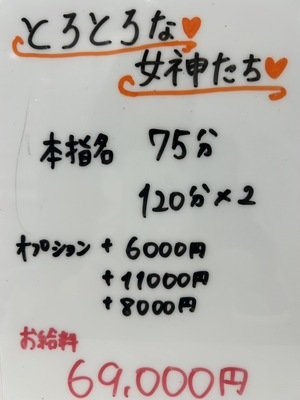 とろとろな♥
女神たち♥
本指名 75分
120分×2
オプション + 6000円
+ 11000円
+ 8000円
お給料
69,000円